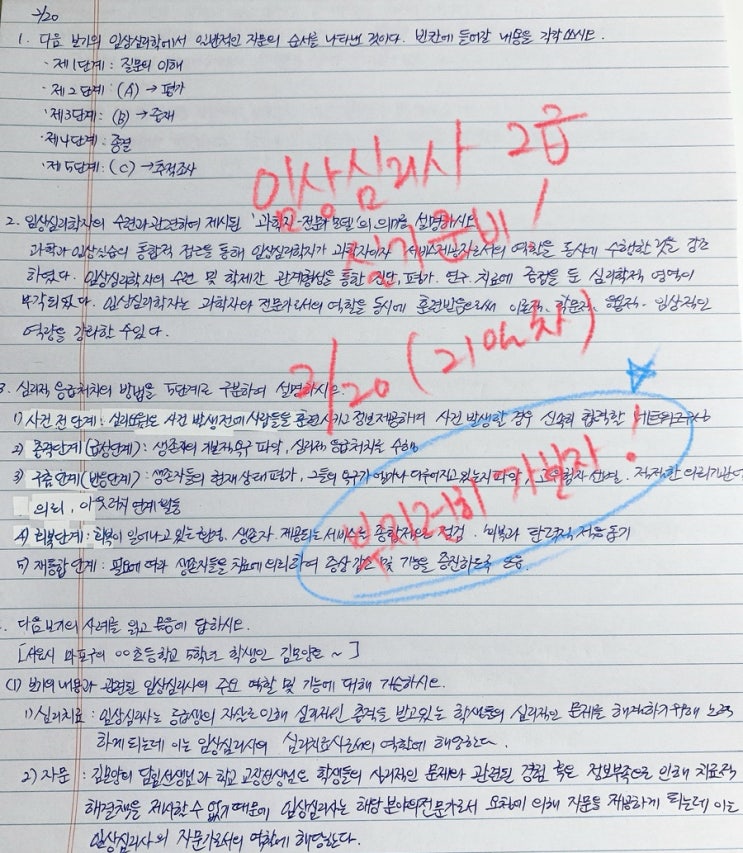 2/20
1. 다음 보기의 임상심리학에서 일반적인 자문의 순서를 나타낸 것이다. 빈칸에 들어갈 내용을 각각 쓰시오.
· 제1단계 : 질문의 이해
· 제2단계 : (A) → 평가
· 제3단계 : (B) → 중재
· 제4단계 : 종결
· 제5단계 : (C) → 추적조사
임상심리사 2급
실기준비!
2. 임상심리학자의 수련과 관련하여 제시된 '과학자-전문가 모델'의 의미를 설명하시오
과학과 임상실습의 통합적 접근을 통해 임상심리학자가 과학자이자 서비스제공자로서의 역할을 동시에 수행한 것을 강조
하였다. 임상심리학자의 수련 및 학제간 관계형성을 통한 진단, 평가, 연구, 치료에 중점을 둔 심리학적 영역이
부각되었다. 임상심리학자는 과학자와 전문가로서의 역할을 동시에 훈련받음으로써 이론적, 학문적, 응용적, 임상적인
역량을 강화한 수 있다.
2/20 (21일차)
3. 심리적 응급처치의 방법을 5단계로 구분하여 설명하시오.
1) 사건 전 단계 : 심리요원도 사건 발생전에 사람들을 훈련시키고 정보제공하며 사건 발생할 경우 신속히 협력할 네트워크구상
2) 충격단계(급성단계) : 생존자의 기본적욕구 파악, 심리적 응급처치를 수행
3) 구출단계(반응단계) : 생존자들의 현재 상태평가, 그들의 욕구가 얼마나 다루어지고 있는지 파악, 고위험자 선별, 적절한 의료기관에
의뢰, 아웃리치 연계 활동
부지런히 가보자!
4) 회복단계 : 회복이 일어나고 있는 환경, 생존자 제공되는 서비스를 종합적으로 점검. 회복과 탄력적 적응 돕기
5) 재통합 단계 : 필요에 따라 생존자들을 치료에 의뢰하여 증상 감소 및 기능을 증진하도록 도움.
. 다음 보기의 사례를 읽고 물음에 답하시오.
[서울시 마포구의 ○○초등학교 5학년 학생인 김모양은 ~]
(1) 보기의 내용과 관련된 임상심리사의 주요 역할 및 기능에 대해 기술하시오.
1) 심리치료 : 임상심리사는 동급생의 자살로 인해 심리적인 충격을 받고있는 학생들의 심리적인 문제를 해결하기 위해 노력
하게 되는데 이는 임상심리사의 심리치료사로서의 역할에 해당한다.
2) 자문 : 김모양의 담임선생님과 학교 교장선생님은 학생들의 심리적인 문제와 관련된 경험 혹은 정보부족으로 인해 치료적
해결책을 제시할 수 없기 때문에 임상심리사는 해당 분야의 전문가로서 요청에 의해 자문을 제공하게 되는데 이는
임상심리사의 자문가로서의 역할에 해당한다.